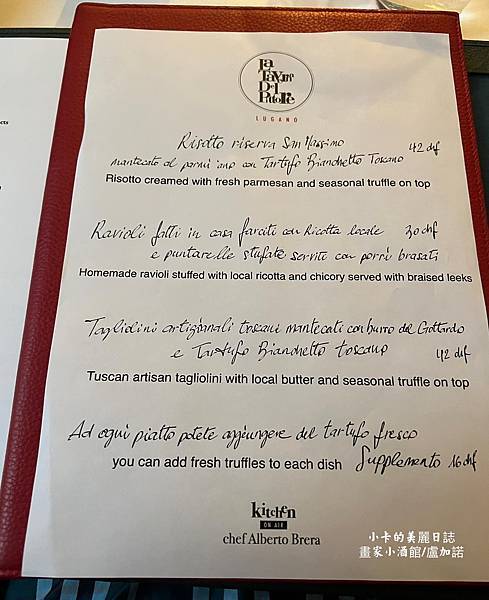 La
Tavernetta
Del
Pittore
LUGANO
Risotto riserva San Massimo 42 chf
mantecato al parmigiano con Tartufo Bianchetto Toscano
Risotto creamed with fresh parmesan and seasonal truffle on top
Ravioli fatti in casa farciti con Ricotta locale 30 chf
e puntarelle stufate serviti con porri brasati
Homemade ravioli stuffed with local ricotta and chicory served with braised leeks
Tagliolini artigianali toscani mantecati con burro del Gottardo
e Tartufo Bianchetto toscano 42 chf
Tuscan artisan tagliolini with local butter and seasonal truffle on top
Ad ogni piatto potete aggiungere del tartufo fresco
you can add fresh truffles to each dish Supplemento 16 chf
kitchen
ON AIR
chef Alberto Brera
小卡的美麗日誌
畫家小酒館/盧加諾